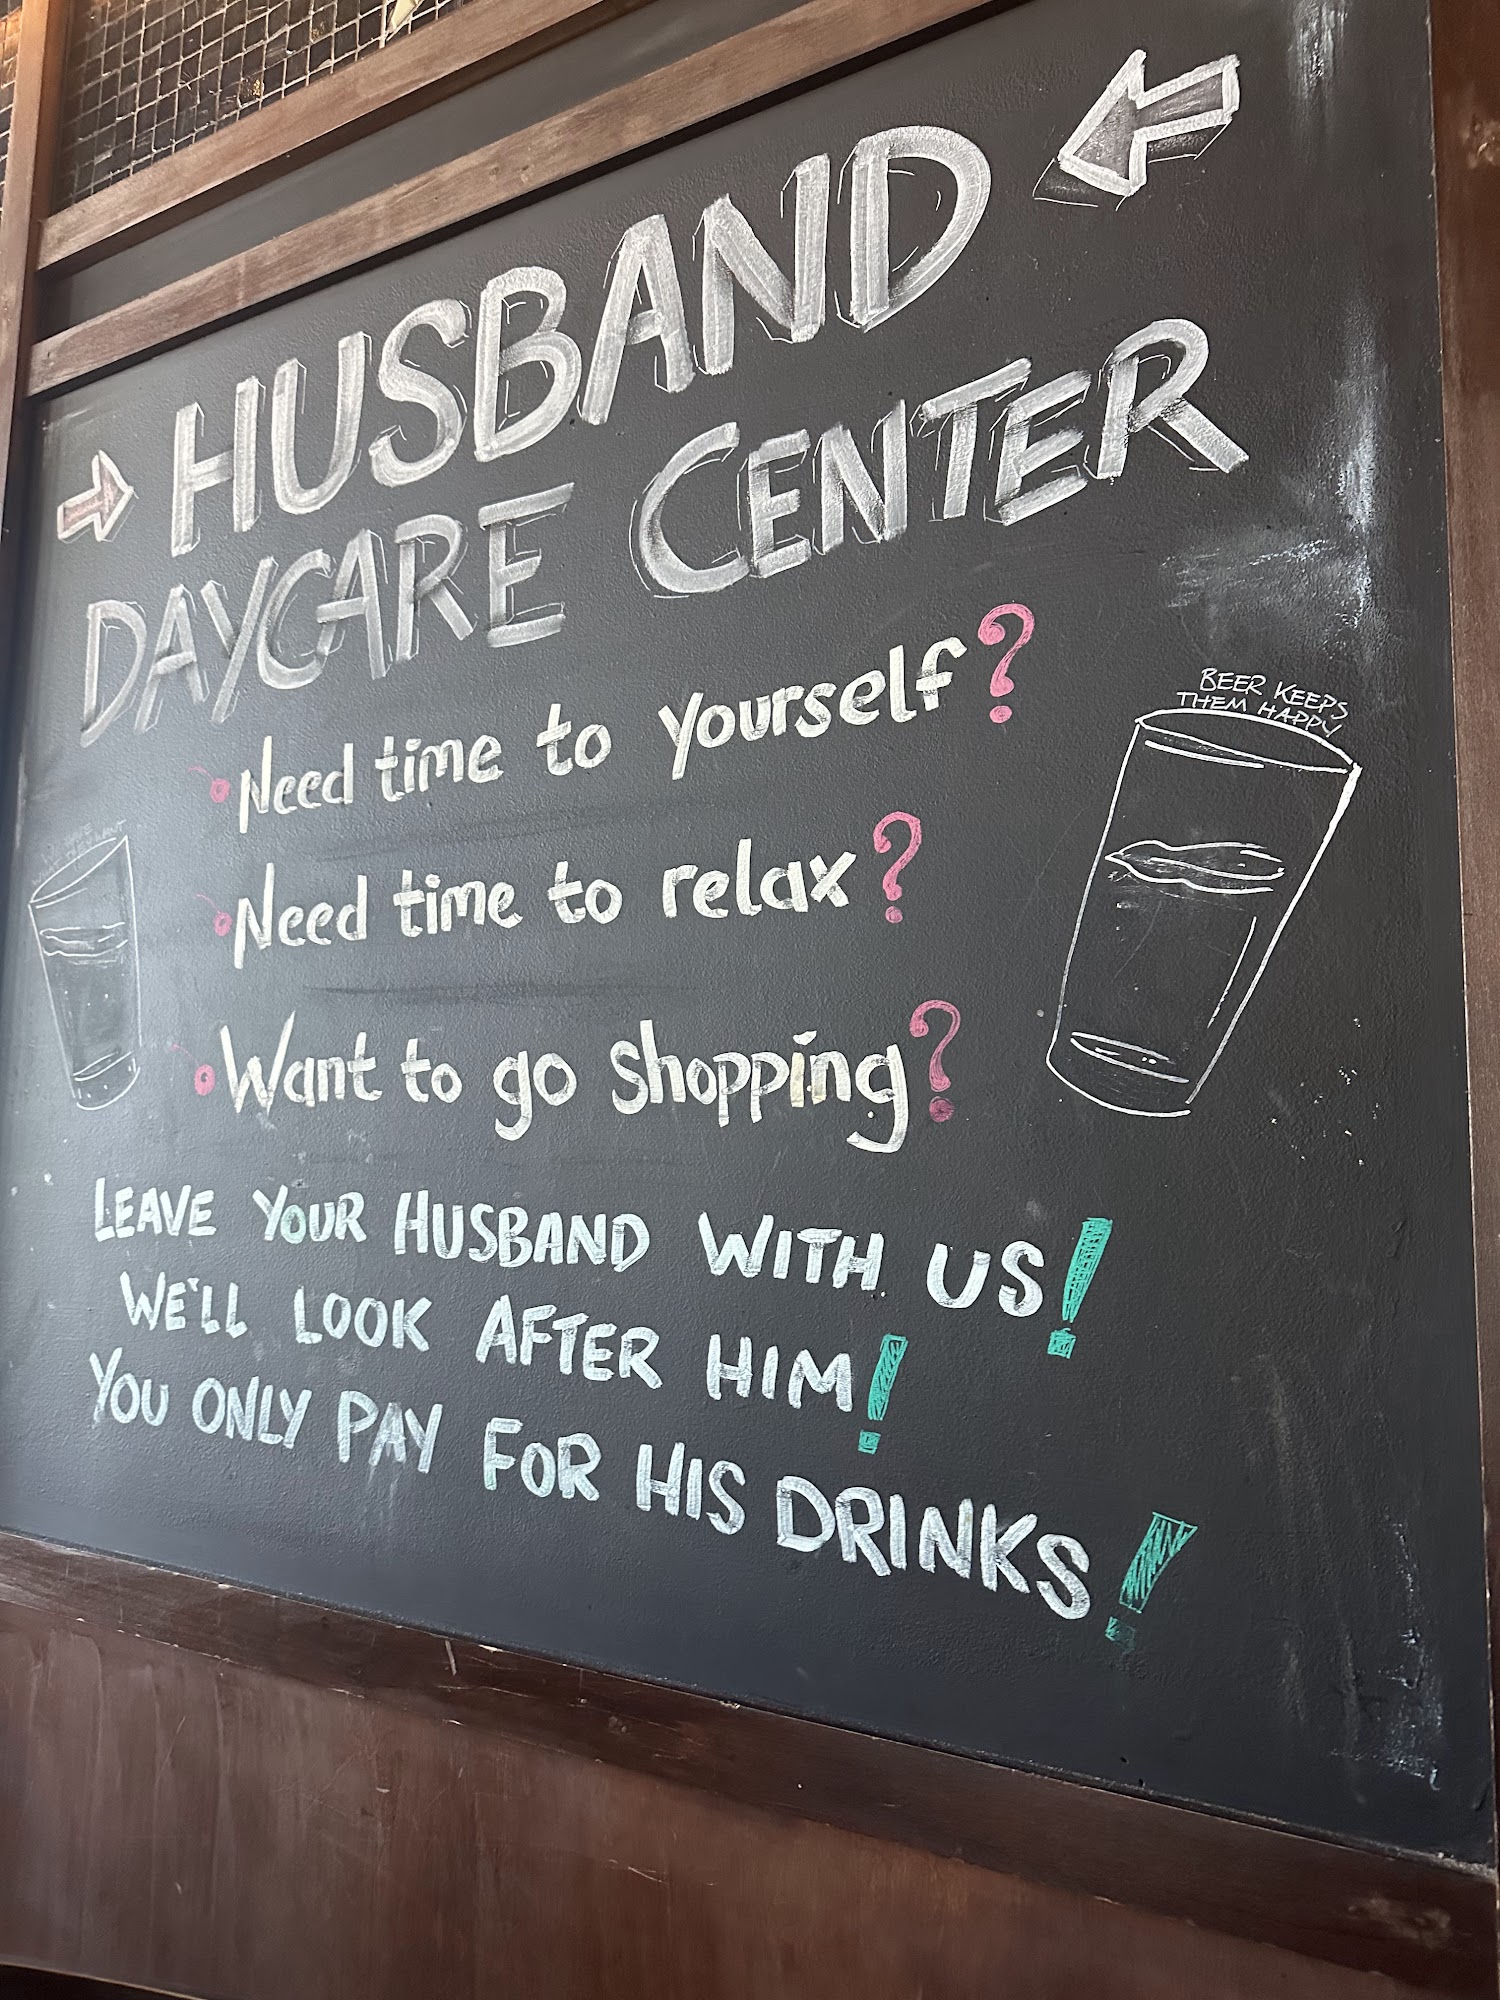 HUSBAND
DAYCARE CENTER
Need time to yourself?
BEER KEEPS
THEM HAPPY
Need time to relax?
Want to go shopping?
LEAVE YOUR HUSBAND WITH US!
WE'LL LOOK AFTER HIM!
YOU ONLY PAY FOR HIS DRINKS!